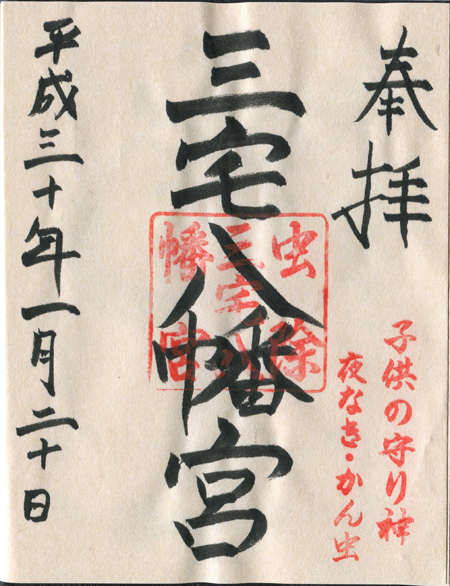 奉拝
子供の守り神
夜なき・かん虫
三宅八幡宮
虫除
三宅八
幡宮
平成三十年一月二十日